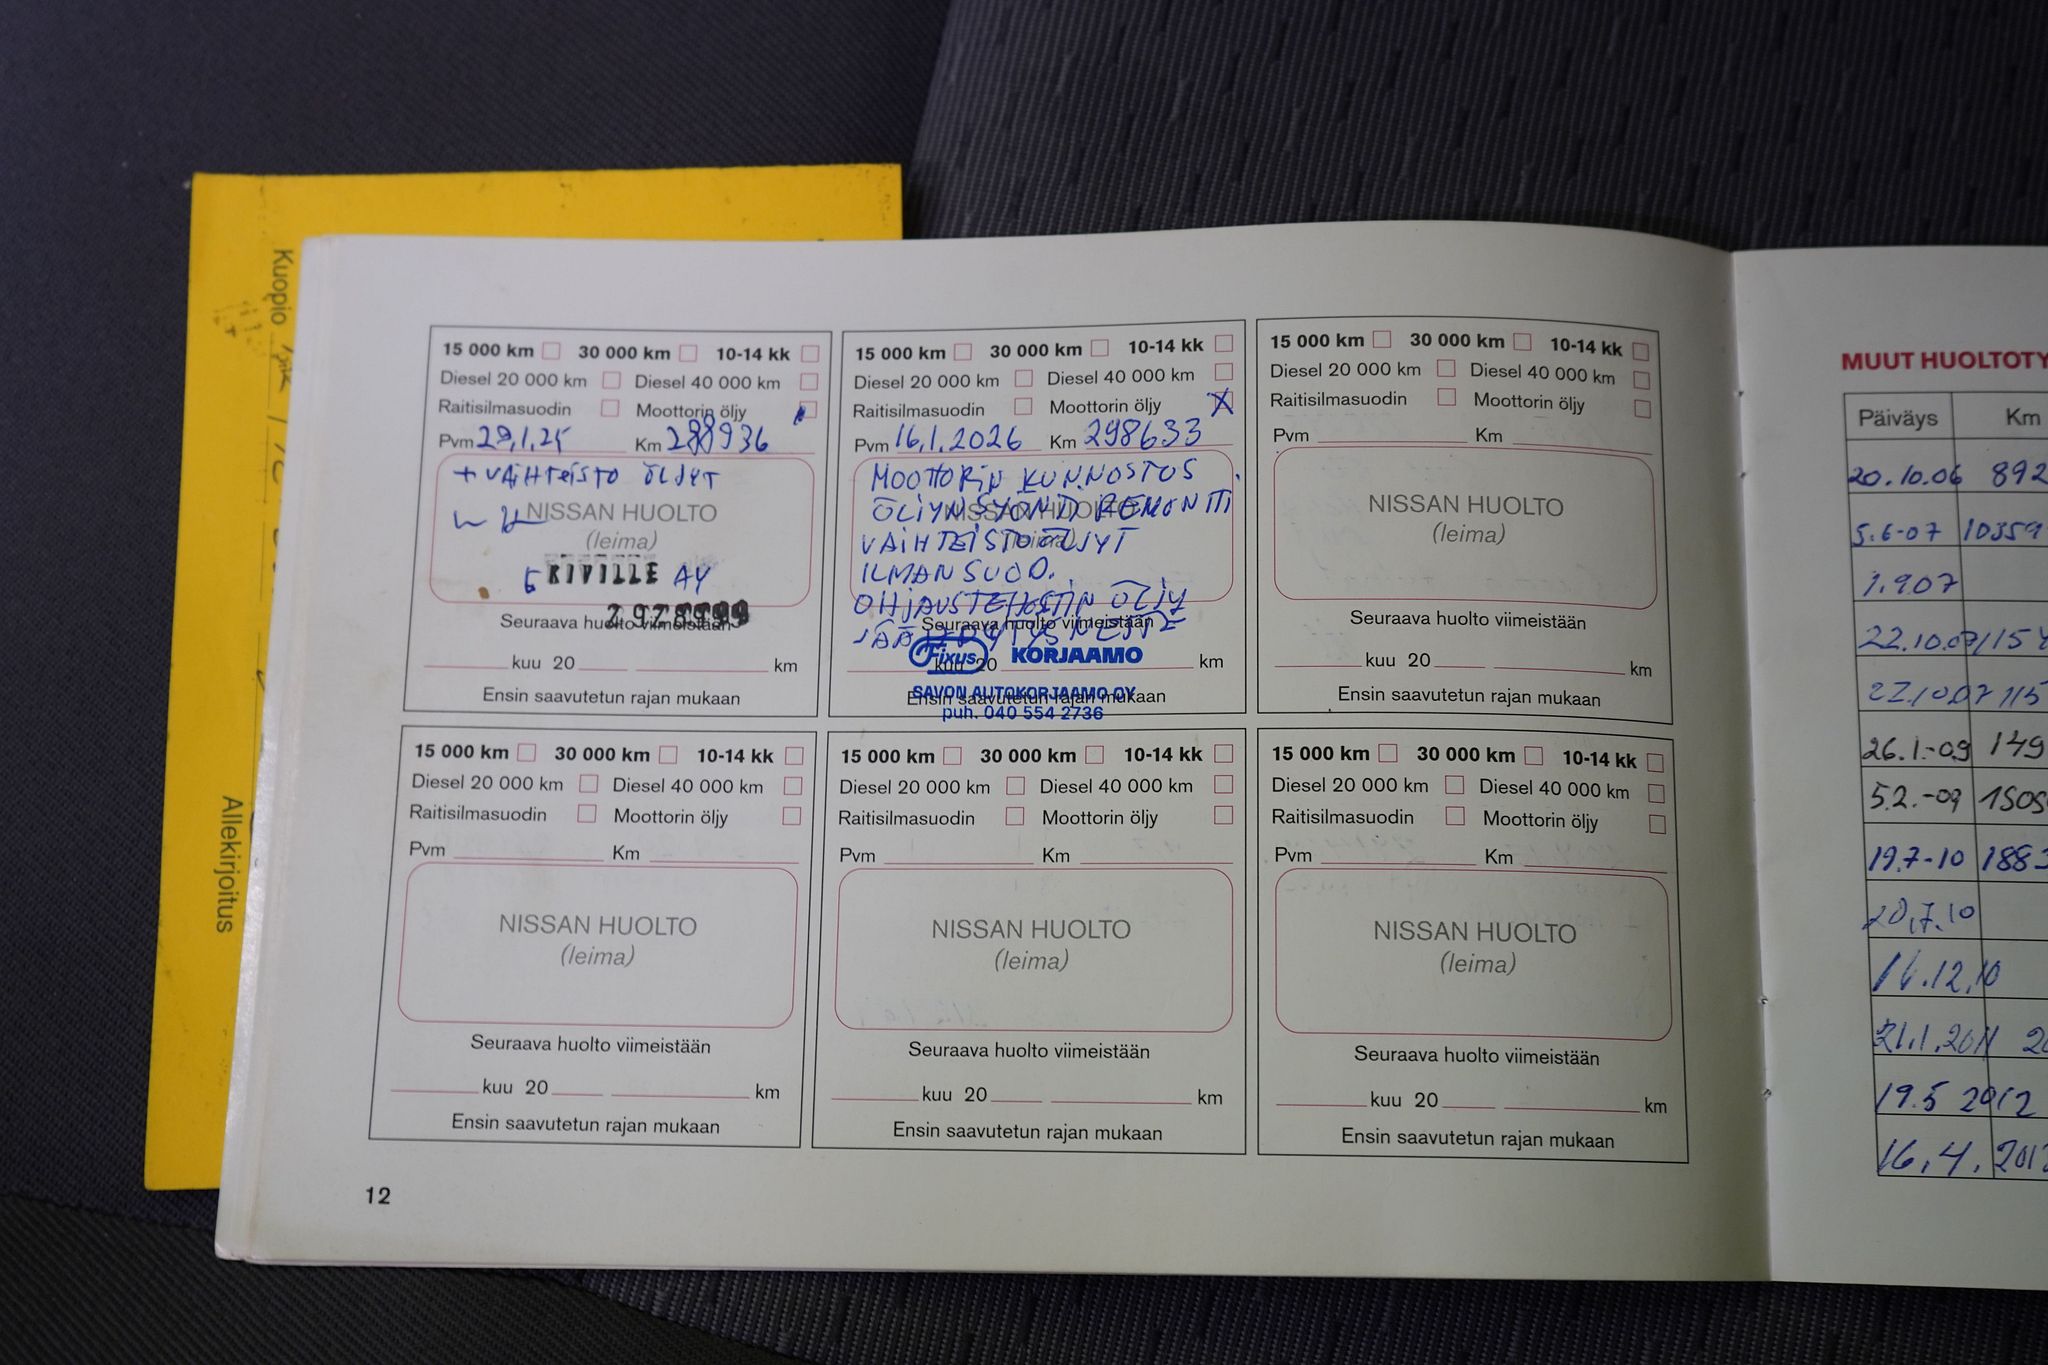 Kuopio
Allekirjoitus
15 000 km 30 000 km 10-14 kk
Diesel 20 000 km Diesel 40 000 km
Raitisilmasuodin Moottorin öljy
Pvm 29.1.25 Km 288936
+ VAIHTEISTO ÖLJYT
NISSAN HUOLTO
(leima)
KIVILLE AY
Seuraava huolto viimeistään
kuu 20 km
Ensin saavutetun rajan mukaan
15 000 km 30 000 km 10-14 kk
Diesel 20 000 km Diesel 40 000 km
Raitisilmasuodin Moottorin öljy X
Pvm 16.1.2026 Km 298633
MOOTTORIN KUNNOSTUS
NISSAN HUOLTO
ÖLJYNSYÖNTI REMONTTI
(leima)
VAIHTEISTOÖLJYT
ILMANSUOD.
OHJAUSTEHOSTIN ÖLJY
Seuraava huolto viimeistään
JÄÄHDYTYSNESTE
Fixus KORJAAMO
kuu 20 km
SAVON AUTOKORJAAMO OY
Ensin saavutetun rajan mukaan
puh. 040 554 2736
15 000 km 30 000 km 10-14 kk
Diesel 20 000 km Diesel 40 000 km
Raitisilmasuodin Moottorin öljy
Pvm Km
NISSAN HUOLTO
(leima)
Seuraava huolto viimeistään
kuu 20 km
Ensin saavutetun rajan mukaan
15 000 km 30 000 km 10-14 kk
Diesel 20 000 km Diesel 40 000 km
Raitisilmasuodin Moottorin öljy
Pvm Km
NISSAN HUOLTO
(leima)
Seuraava huolto viimeistään
kuu 20 km
Ensin saavutetun rajan mukaan
15 000 km 30 000 km 10-14 kk
Diesel 20 000 km Diesel 40 000 km
Raitisilmasuodin Moottorin öljy
Pvm Km
NISSAN HUOLTO
(leima)
Seuraava huolto viimeistään
kuu 20 km
Ensin saavutetun rajan mukaan
15 000 km 30 000 km 10-14 kk
Diesel 20 000 km Diesel 40 000 km
Raitisilmasuodin Moottorin öljy
Pvm Km
NISSAN HUOLTO
(leima)
Seuraava huolto viimeistään
kuu 20 km
Ensin saavutetun rajan mukaan
12
MUUT HUOLTOTY
Päiväys Km
20.10.06 892
5.6-07 10359
1.9.07
22.10.07 115
22.10.07 115
26.1.-09 149
5.2.-09 1505
19.7-10 1883
20.7.10
16.12.10
21.1.2011 20
19.5 2012
16.4.201